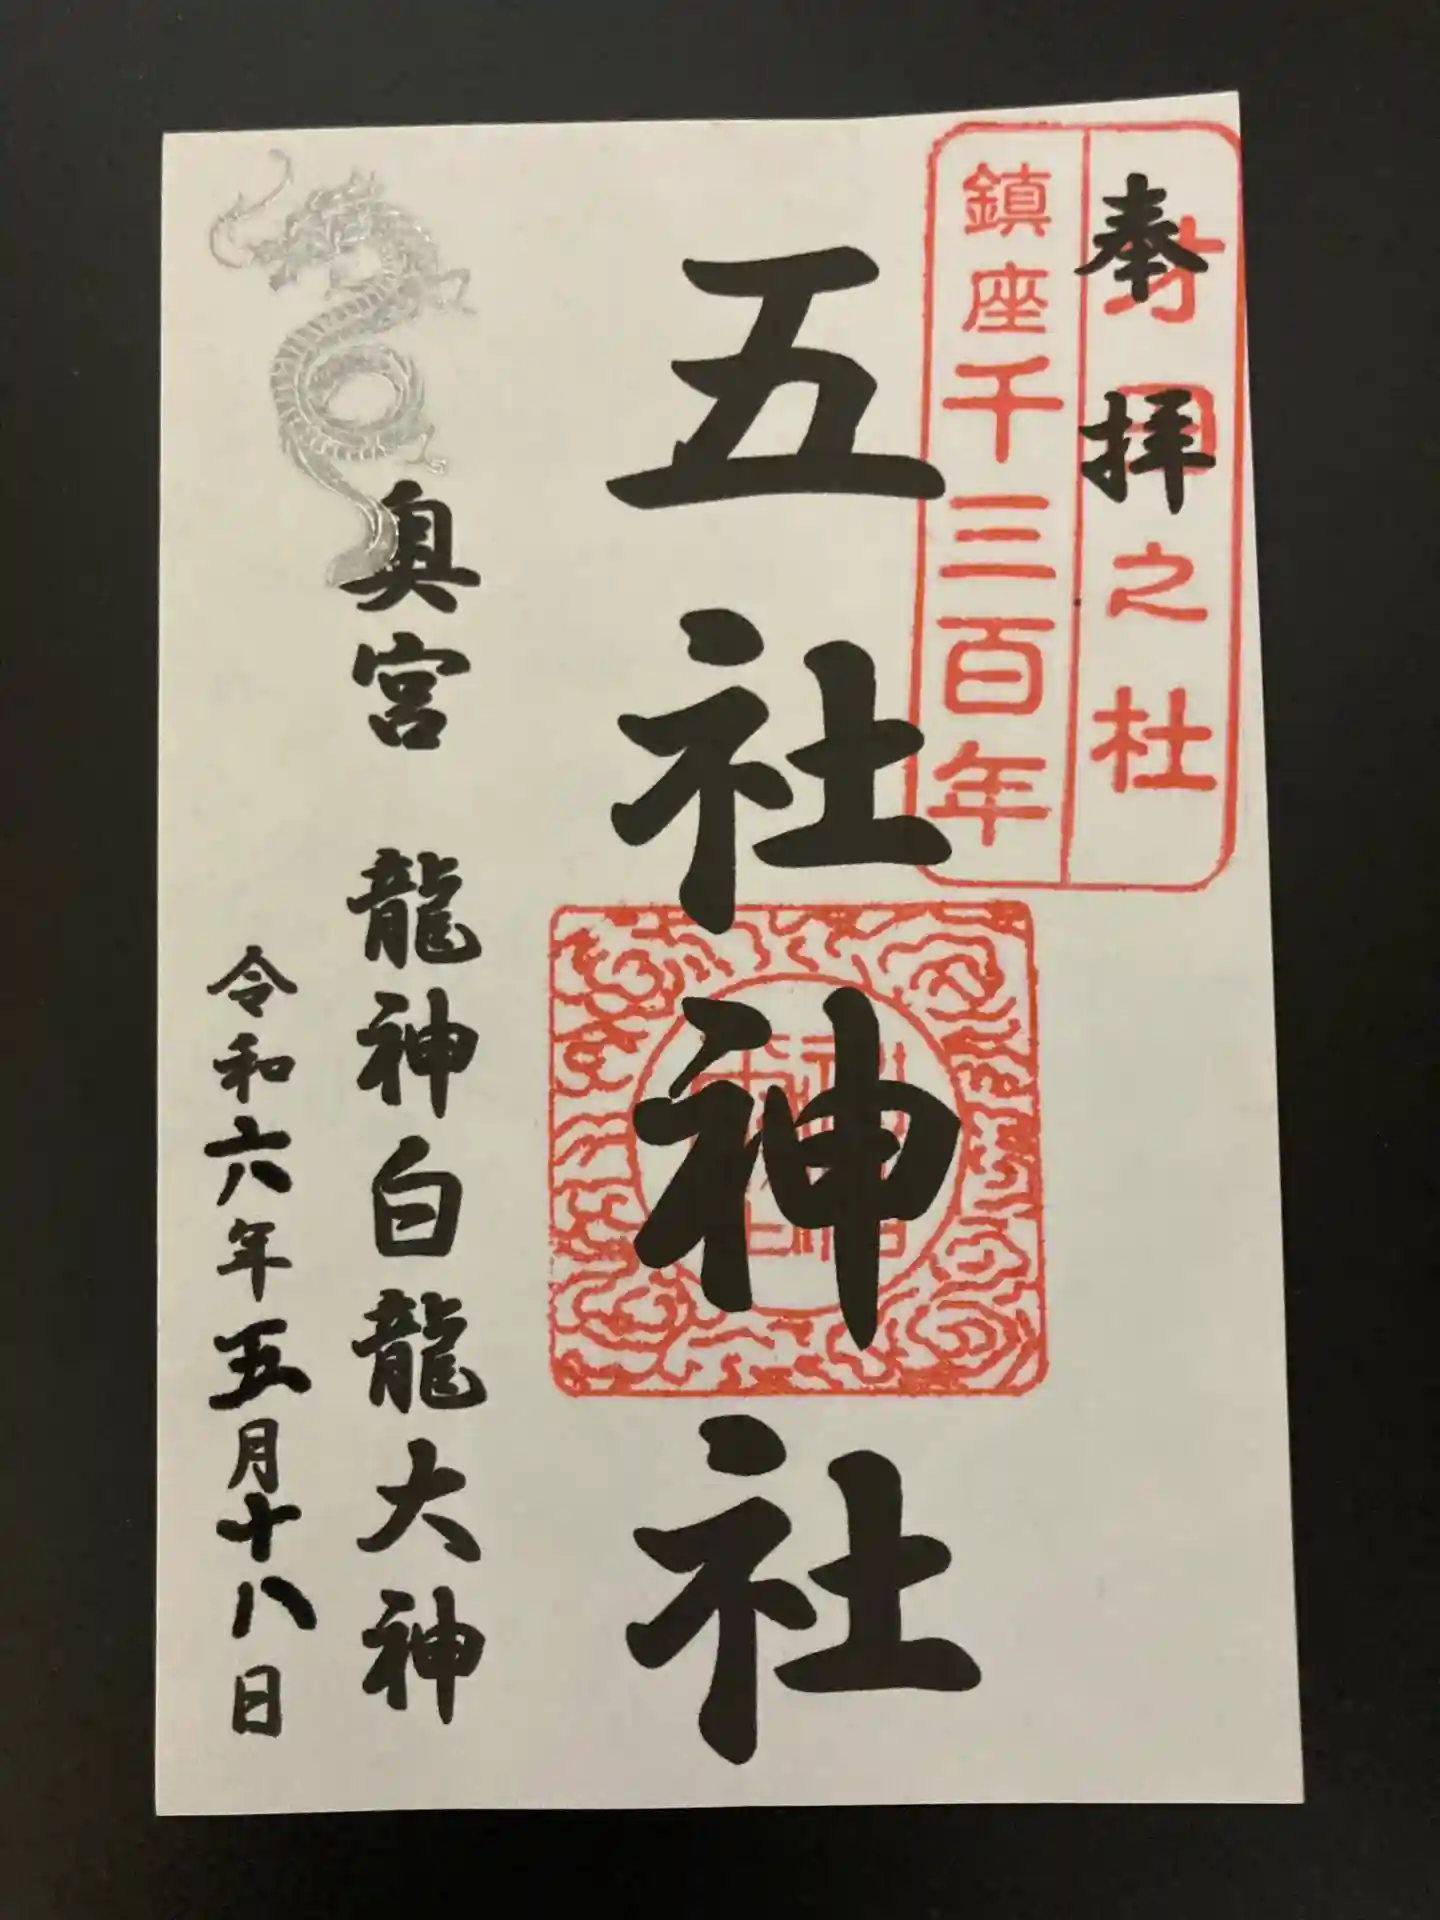 奉拝
才田之杜
鎮座千三百年
五社神社
奥宮 龍神白龍大神
令和六年五月十八日